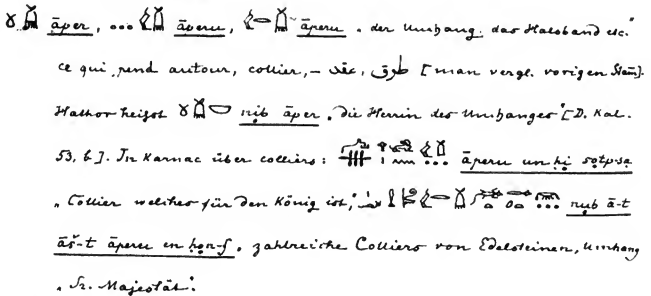 āper, āperu, āperu. „der Umhang, das Halsband etc.“
ce qui pend autour, collier, – عقد, طوق [man vergl. vorigen Stam].
Hathor heißt nib āper „die Herrin des Umhanges“ [D. Kal.
53, b]. In Karnac über colliers: āperu un ḥi sotp-sa
„Collier welches für den König ist,“ nub ā-t
āš-t āperu en ḥon-f. zahlreiche Colliers von Edelsteinen, Umhang
„Sr. Majestät“.